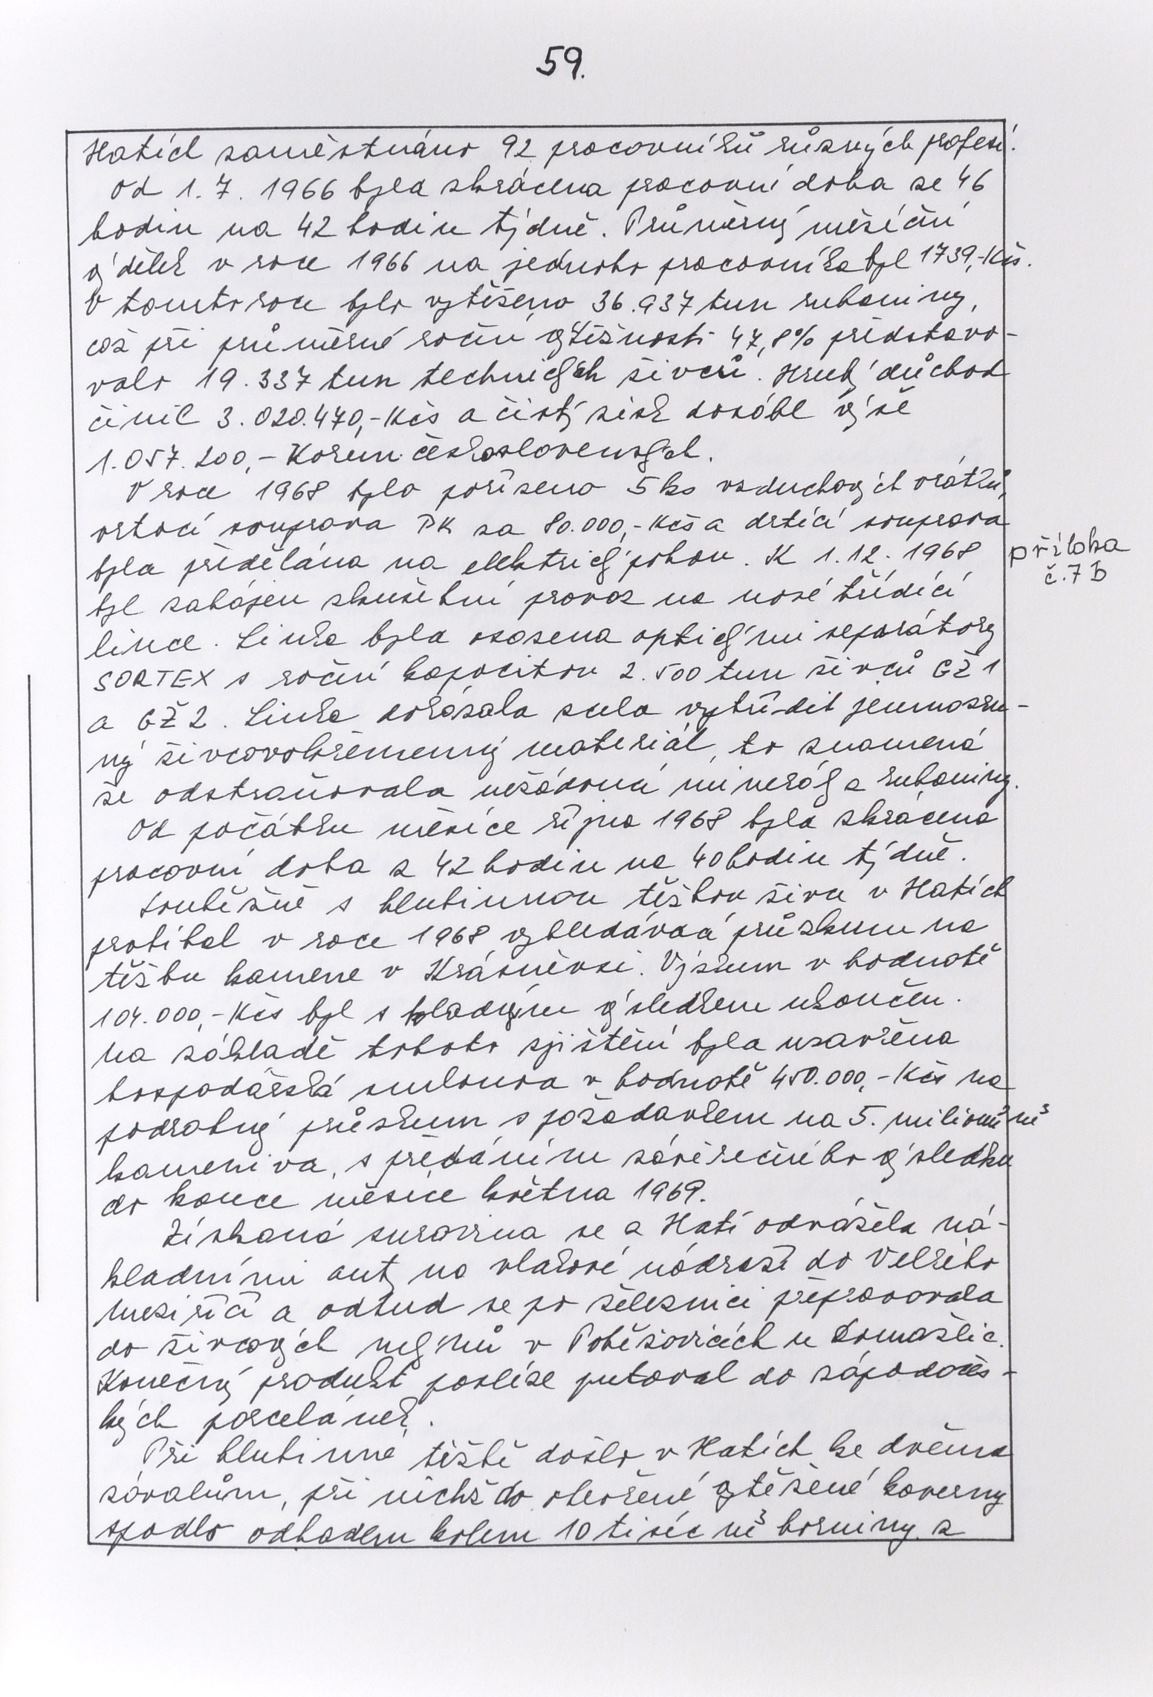 59.
Hatích zaměstnáno 92 pracovníků různých profesí.
Od 1. 7. 1966 byla zkrácena pracovní doba ze 46
hodin na 42 hodin týdně. Průměrný měsíční
výdělek v roce 1966 na jednoho pracovníka byl 1739,-Kčs.
V tomto roce bylo vytěženo 36.937 tun rubaniny,
což při průměrné roční výtěžnosti 47,8% představo-
valo 19.337 tun technických živců. Hrubý důchod
činil 3.020.470,-Kčs a čistý zisk dosáhl výše
1.057.200,- Korun československých.
V roce 1968 bylo pořízeno 5 ks vzduchových vrátků,
vrtací souprava DK za 80.000,-Kčs a drtící souprava
byla předělána na elektrický pohon. K 1.12. 1968
příloha
č. 7 b
byl zahájen zkušební provoz na nové třídící
lince. Linka byla osazena optickými separátory
SORTEX s roční kapacitou 2.500 tun živců GŽ 1
a GŽ 2. Linka dokázala zcela vytřídit jemnozrn-
ný živcovokřemenný materiál, to znamená
že odstraňovala nežádoucí minerály z rubaniny.
Od počátku měsíce října 1968 byla zkrácena
pracovní doba z 42 hodin na 40 hodin týdně.
Souběžně s hlubinnou těžbou živce v Hatích
probíhal v roce 1968 vyhledávací průzkum na
těžbu kamene v Krásněvsi. Výzkum v hodnotě
104.000,-Kčs byl s kladným výsledkem ukončen.
Na základě tohoto zjištění byla uzavřena
hospodářská smlouva v hodnotě 450.000,-Kčs na
podrobný průzkum s požadavkem na 5. milionů m³
kameniva, s předáním závěrečného výsledku
do konce měsíce května 1969.
Získaná surovina se z Hatí odvážela ná-
kladními auty na vlakové nádraží do Velkého
Meziříčí a odtud se po železnici přepravovala
do živcových mlýnů v Poběžovicích u Domažlic.
Konečný produkt posléze putoval do západočes-
kých porcelánek.
Při hlubinné těžbě došlo v Hatích ke dvěma
závalům, při nichž do otevřené vytěžené kaverny
spadlo odhadem kolem 10 tisíc m³ horniny z